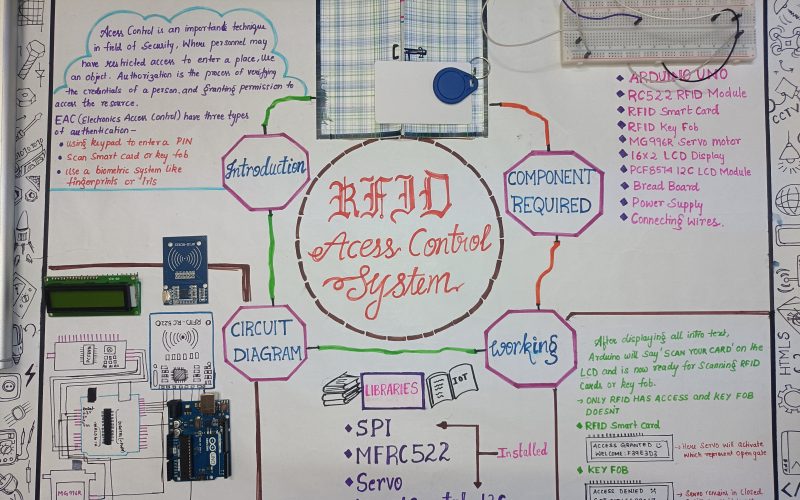 Acess Control is an important technique
in field of Security, Where personnel may
have restricted access to enter a place, Use
an object. Authorization is the process of verifying
the credentials of a person and granting permission to
access the resource.
EAC (Electronics Access Control) have three types
of authentication -
using keypad to enter a PIN
Scan Smart card or key fob
Use a biometric system like
fingerprints or Iris
Introduction
RFID
Acess Control
System
COMPONENT
REQUIRED
ARDUINO UNO
RC522 RFID Module
RFID Smart Card
RFID Key Fob
MG996R Servo motor
16x2 LCD Display
PCF8574 I2C LCD Module
Bread Board
Power Supply
Connecting Wires.
CIRCUIT
DIAGRAM
RFID-RC522
MG996R
working
After displaying all intro text,
Arduino will Say 'SCAN YOUR CARD' on the
LCD and is now ready for Scanning RFID
Cards or key fob.
→ ONLY RFID HAS ACCESS AND KEY FOB
DOESNT
RFID Smart Card
ACCESS GRANTED
WELCOME:
→ Here Servo will Activate
which represent Open gate
KEY FOB
ACCESS DENIED
→ Servo remain in Closed
LIBRARIES
IOT
SPI
MFRC522
Servo
Installed
HTML5